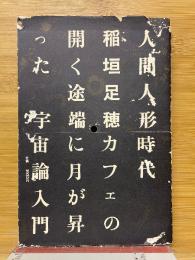 人間人形時代
稲垣足穂カフェの
開く途端に月が昇
った 宇宙論入門